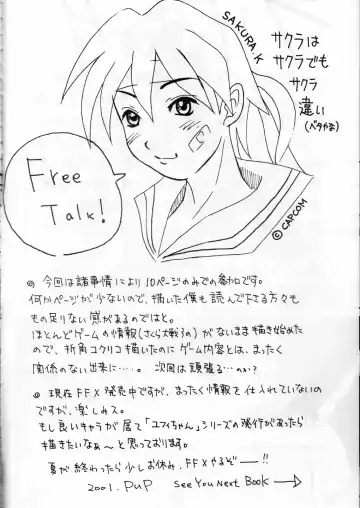 SAKURA.K
サクラは
サクラでも
サクラ
違い
(ベタやな)
Free
Talk!
© CAPCOM
◎ 今回は諸事情により10ページのみでの参加です。
何かページが少ないので、描いた僕も読んで下さる方々も
もの足りない感があるのではと。
ほとんどゲームの情報(さくら大戦3の)がないまま描き始めた
ので、折角コクリコ描いたのにゲーム内容とは、まったく
関係のない出来に‥‥。次回は頑張る‥のか?
◎ 現在FFX発売中ですが、まったく情報を仕入れていないの
ですが、楽しみス。
もし良いキャラが居て「ユフィちゃん」シリーズの発行があったら
描きたいなぁ〜と思っております。
夏が終わったら少しお休み、FFXやるぞ——!!
2001. PUP See You Next Book →